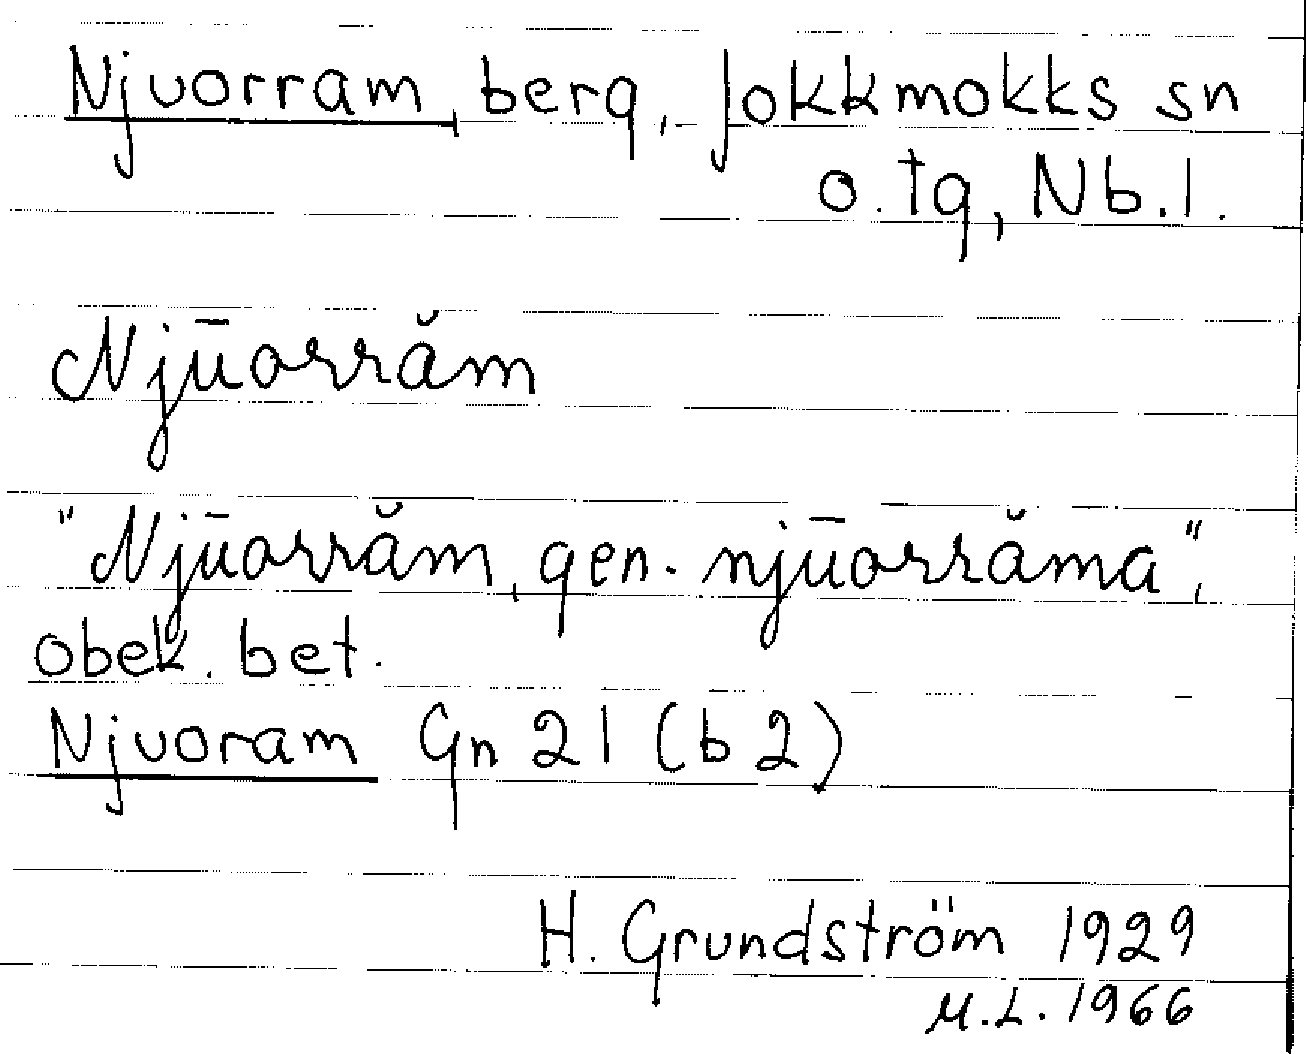 Njuorram, berg, Jokkmokks sn
o. tg, Nb. l.
Njūorrăm
"Njūorrăm, gen. njūorrăma",
obek. bet.
Njuoram Gn 21 (b 2)
H. Grundström 1929
M.L. 1966